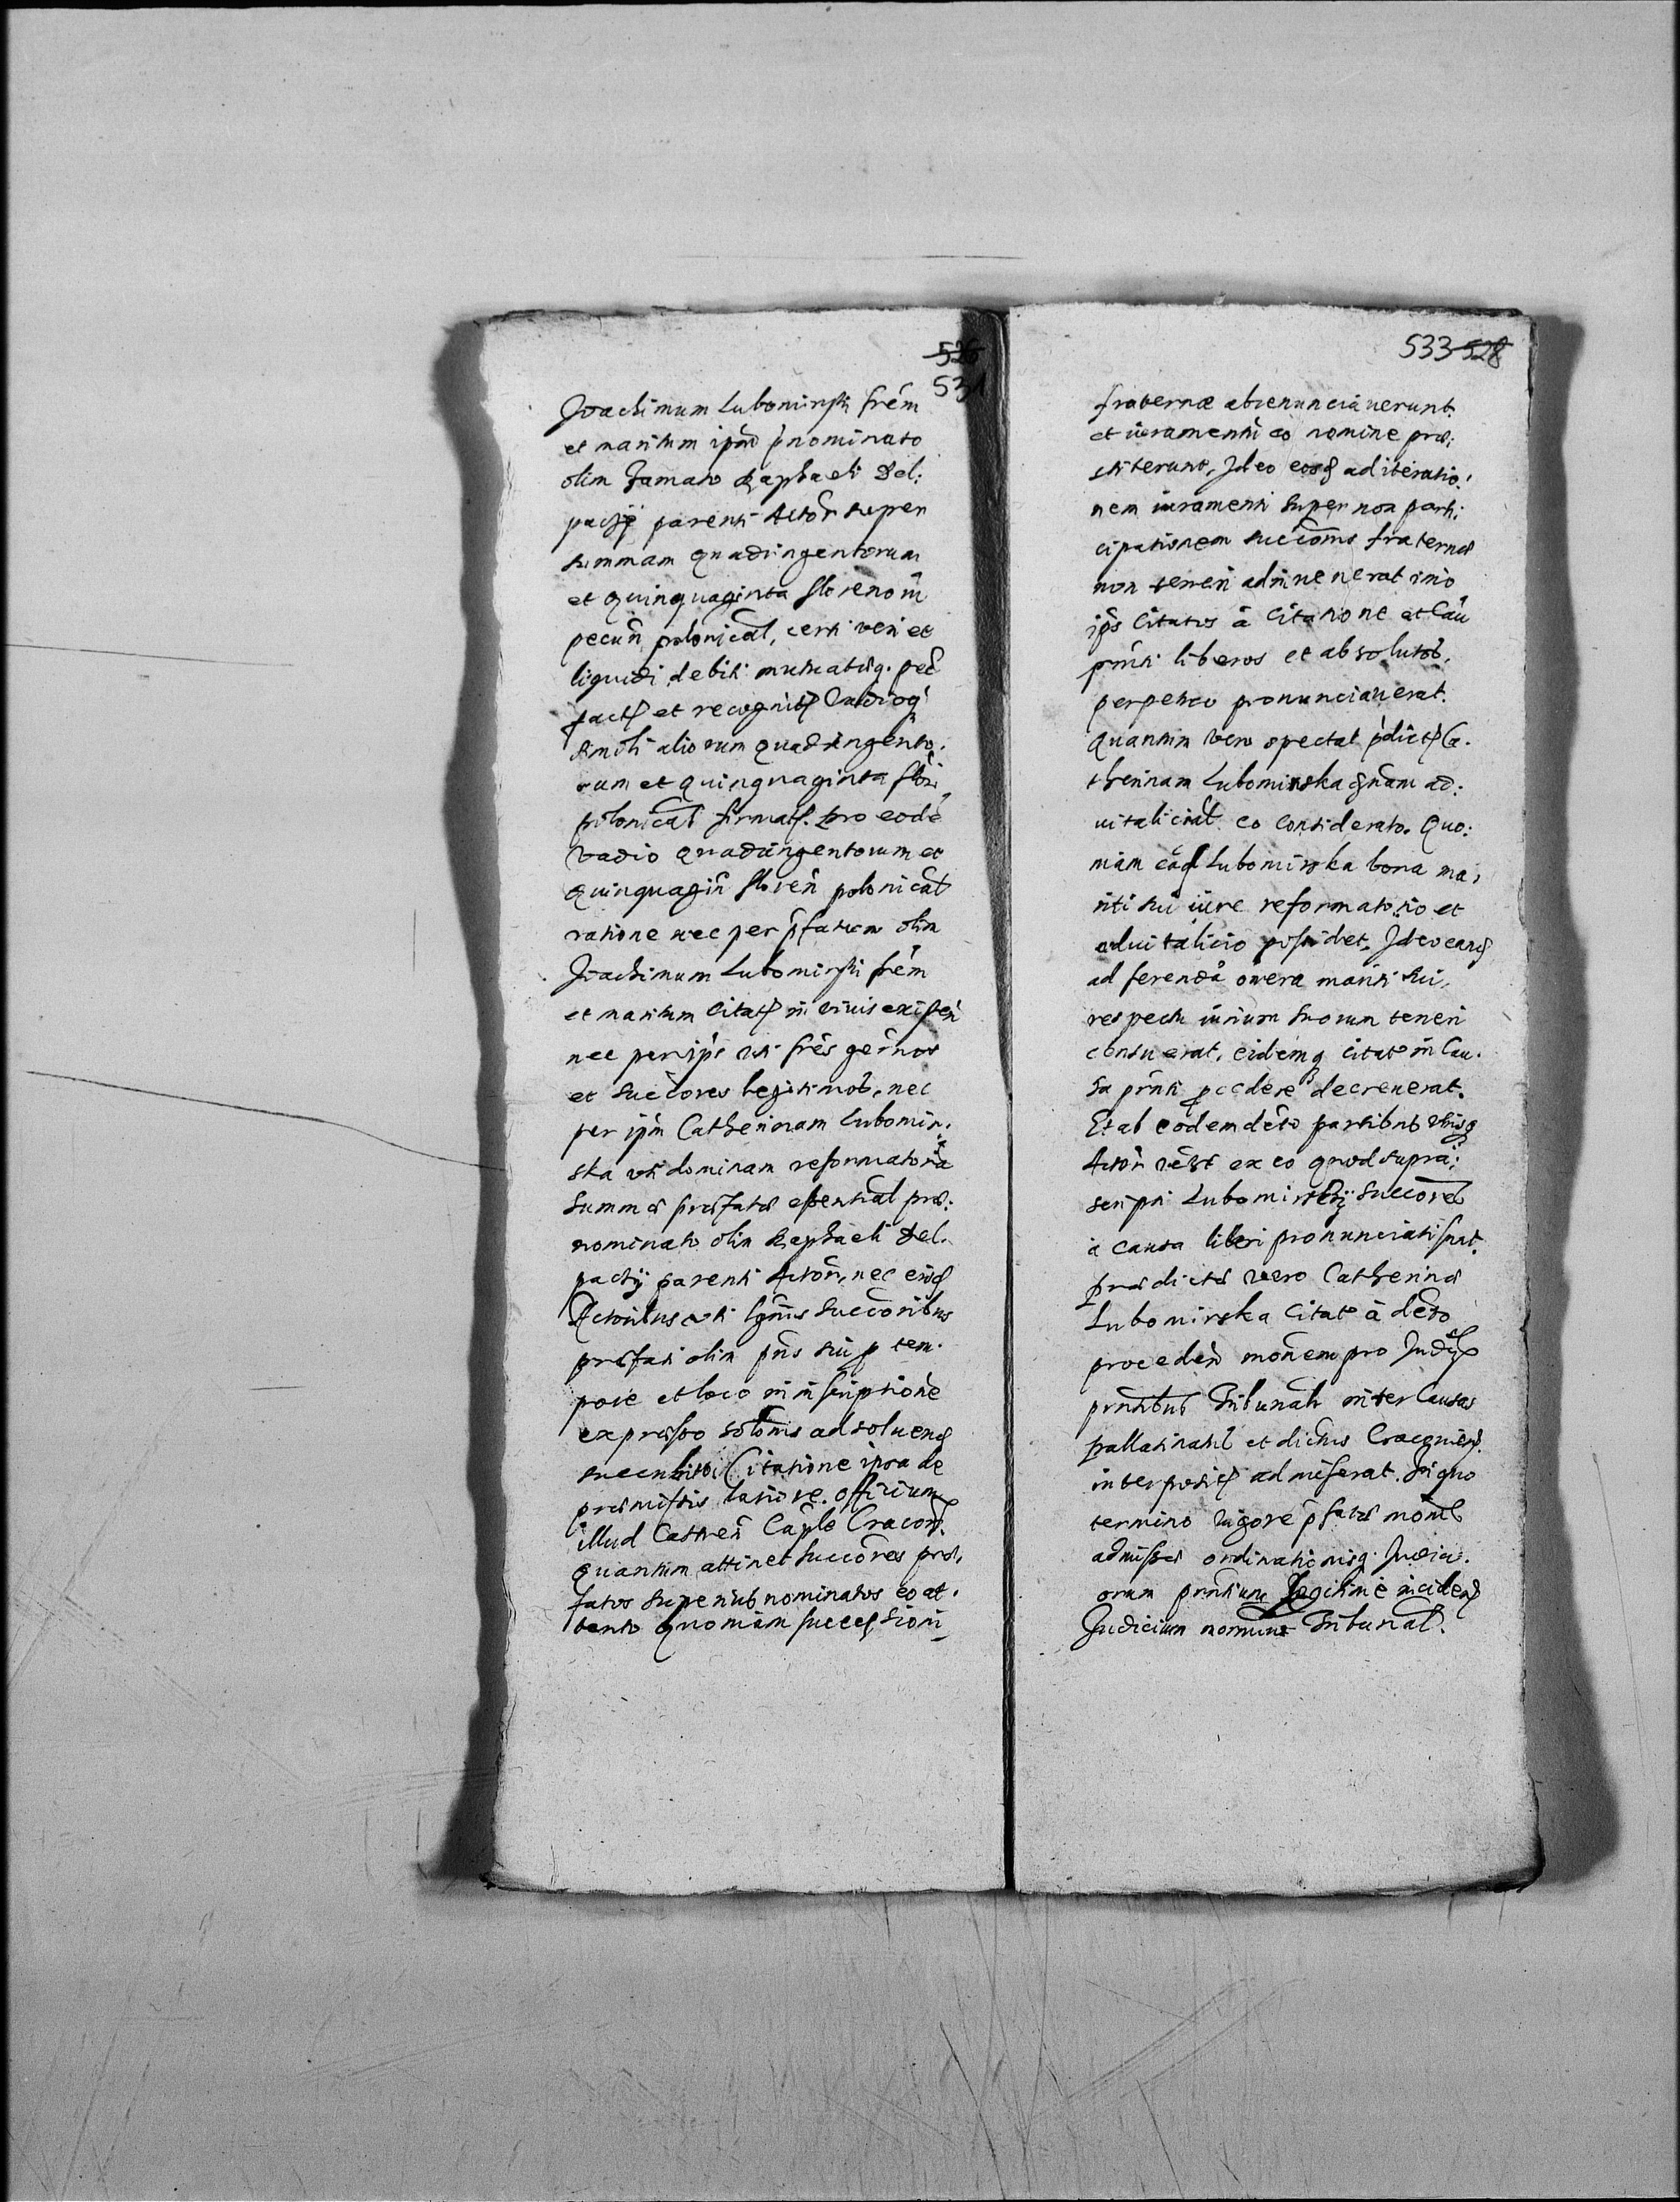 526
531
Joachimum Lubomirski frém
et maritum ipm̃ p̃nominato
olim Famato Raphaeli Del:
pacÿ parenti Actor̃ super
summam quadringentorum
et quinquaginta florenorũ
pecuñ polonical, certi veri et
liquidi debiti mutuatiq. pec̃
fact et recognit vadioq
simili aliorum quadringento.
rum et quinquaginta flor̃
polonical firmat. pro eodẽ
vadio quadringentorum et
quinquagiñ floreñ polonical
ratione nec per p̃fatum olim
Joachimum Lubomirski frém
et maritum Citat in vivis existeñ
nec per ip̃s uti frés germos
et succ̃ores legitimos, nec
per ip̃m Catherinam Lubomir:
ska uti dominam reformatoria
Summæ præfatæ essential præ:
nominato olim Raphaeli Del.
pacÿ parenti Actor̃, nec eisd
Actoribus uti lg̃mis succ̃oribus
præfati olim pñs sui p tem.
pore et loco in inscriptione
expresso sol̃onis ad solueñd
succubito, Citatione ipsa de
præmissis latiore. Officium
illud Castreñ Cap̃le Cracov̄.
quantum attinet succ̃ores præ,
fatos superius nominatos eo at.
tento Quoniam succession̄
533 528
fraternæ abrenunciauerunt
et iuramenti eo nomine præ:
stiterunt, Ideo eosd ad iteratio:
nem iuramenti super non parti:
cipationem succ̃onis fraternæ
non teneri adinuenerat imò
ip̃s Citatos à Citatione et Cau
pr̃nti liberos et absolutos,
perpetuo pronunciauerat.
Quantum vero spectat p̃dict Ca.
therinam Lubomirska qnam ad:
uitalicial eo Considerato. Quo:
niam eãd Lubomirska bona ma,
riti sui iure reformatorio et
aduitalicio possidet. Ideo eand
ad ferenda onera mariti sui,
respectu iurium suorum teneri
censuerat, eidemq Citat in Cau.
sa pr̃nti p̃cedere decreuerat.
Et ab eodem dec̃to partibus utrisq
Actor̃ ex eo quod supra:
scripti Lubomirscÿ succ̃ores
à causa liberi pronunciati sunt.
prædictæ vero Catherinæ
Lubomirska Citat à dec̃to
procedeñ mõnem pro Judÿs
pr̃ntibus Tribunal inter Causas
pallatinatus et districtus Cracouieñ.
interposit admiserat. In quo
termino vigore p̃fatæ mõnis
admissæ ordinationisq. Judici.
orum pr̃ntium legitimè incideñ
Judicium nominis Tribunal.